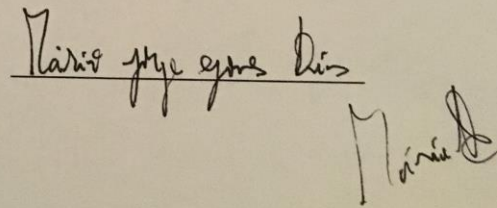 Mário Jorge Gomes Dias
Mário D